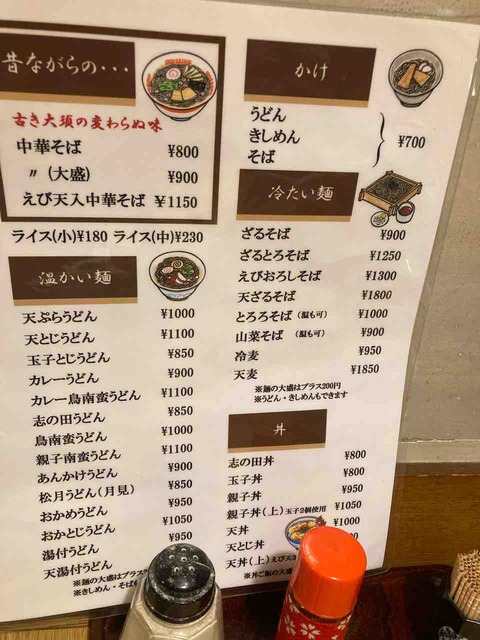 昔ながらの・・・
古き大須の変わらぬ味
中華そば ¥800
〃 (大盛) ¥900
えび天入中華そば ¥1150
ライス(小)¥180 ライス(中)¥230
温かい麺
天ぷらうどん ¥1000
天とじうどん ¥1100
玉子とじうどん ¥850
カレーうどん ¥900
カレー鳥南蛮うどん ¥1100
志の田うどん ¥850
鳥南蛮うどん ¥1000
親子南蛮うどん ¥1100
あんかけうどん ¥900
松月うどん(月見) ¥850
おかめうどん ¥950
おかとじうどん ¥1050
湯付うどん ¥950
天湯付うどん
※麺の大盛はプラス
※きしめん・そば
かけ
うどん
きしめん ¥700
そば
冷たい麺
ざるそば ¥900
ざるとろそば ¥1250
えびおろしそば ¥1300
天ざるそば ¥1800
とろろそば (温も可) ¥1000
山菜そば (温も可) ¥900
冷麦 ¥950
天麦 ¥1850
※麺の大盛はプラス200円
※うどん・きしめんもできます
丼
志の田丼 ¥800
玉子丼 ¥800
親子丼 ¥950
親子丼(上)玉子2個使用 ¥1050
天丼 ¥1000
天とじ丼
天丼(上)えび天
※丼ご飯の大盛